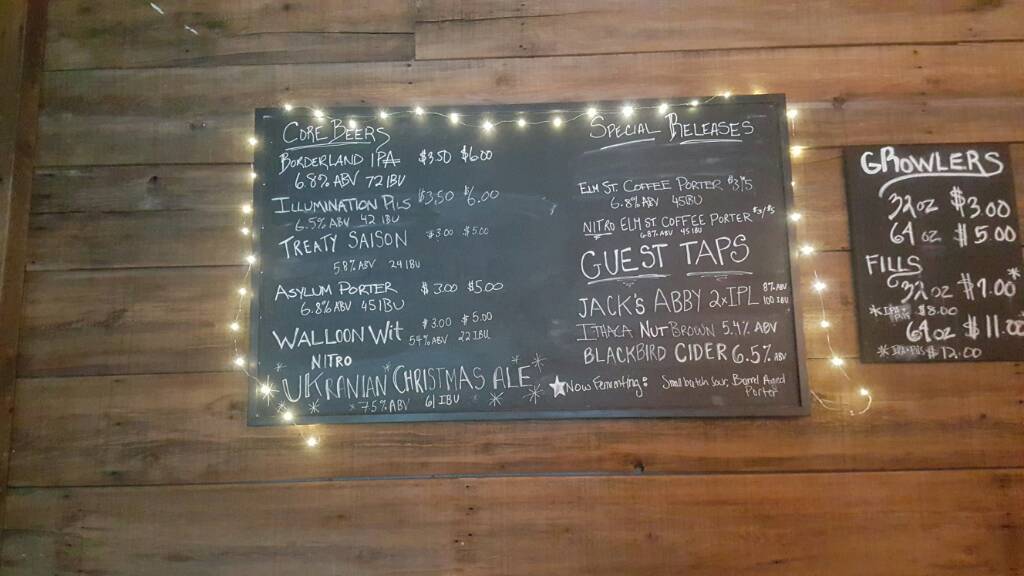 CORE BEERS
BORDERLAND IPA $3.50 $6.00
6.8% ABV 72 IBU
ILLUMINATION PILS $3.50 $6.00
6.5% ABV 42 IBU
TREATY SAISON $3.00 $5.00
5.8% ABV 24 IBU
ASYLUM PORTER $3.00 $5.00
6.8% ABV 45 IBU
WALLOON WIT $3.00 $5.00
5.4% ABV 22 IBU
NITRO
UKRANIAN CHRISTMAS ALE
7.5% ABV 61 IBU
SPECIAL RELEASES
ELM ST COFFEE PORTER $3/5
6.8% ABV 45 IBU
NITRO ELM ST COFFEE PORTER $3/$5
6.8% ABV 45 IBU
GUEST TAPS
JACK'S ABBY 2xIPL 8% ABV
100 IBU
ITHACA NUT BROWN 5.4% ABV
BLACKBIRD CIDER 6.5% ABV
Now Fermenting: Small batch Sour, Barrel Aged
Porter
GROWLERS
32 oz $3.00
64 oz $5.00
FILLS
32 oz $7.00*
$8.00
64 oz $11.00
$12.00